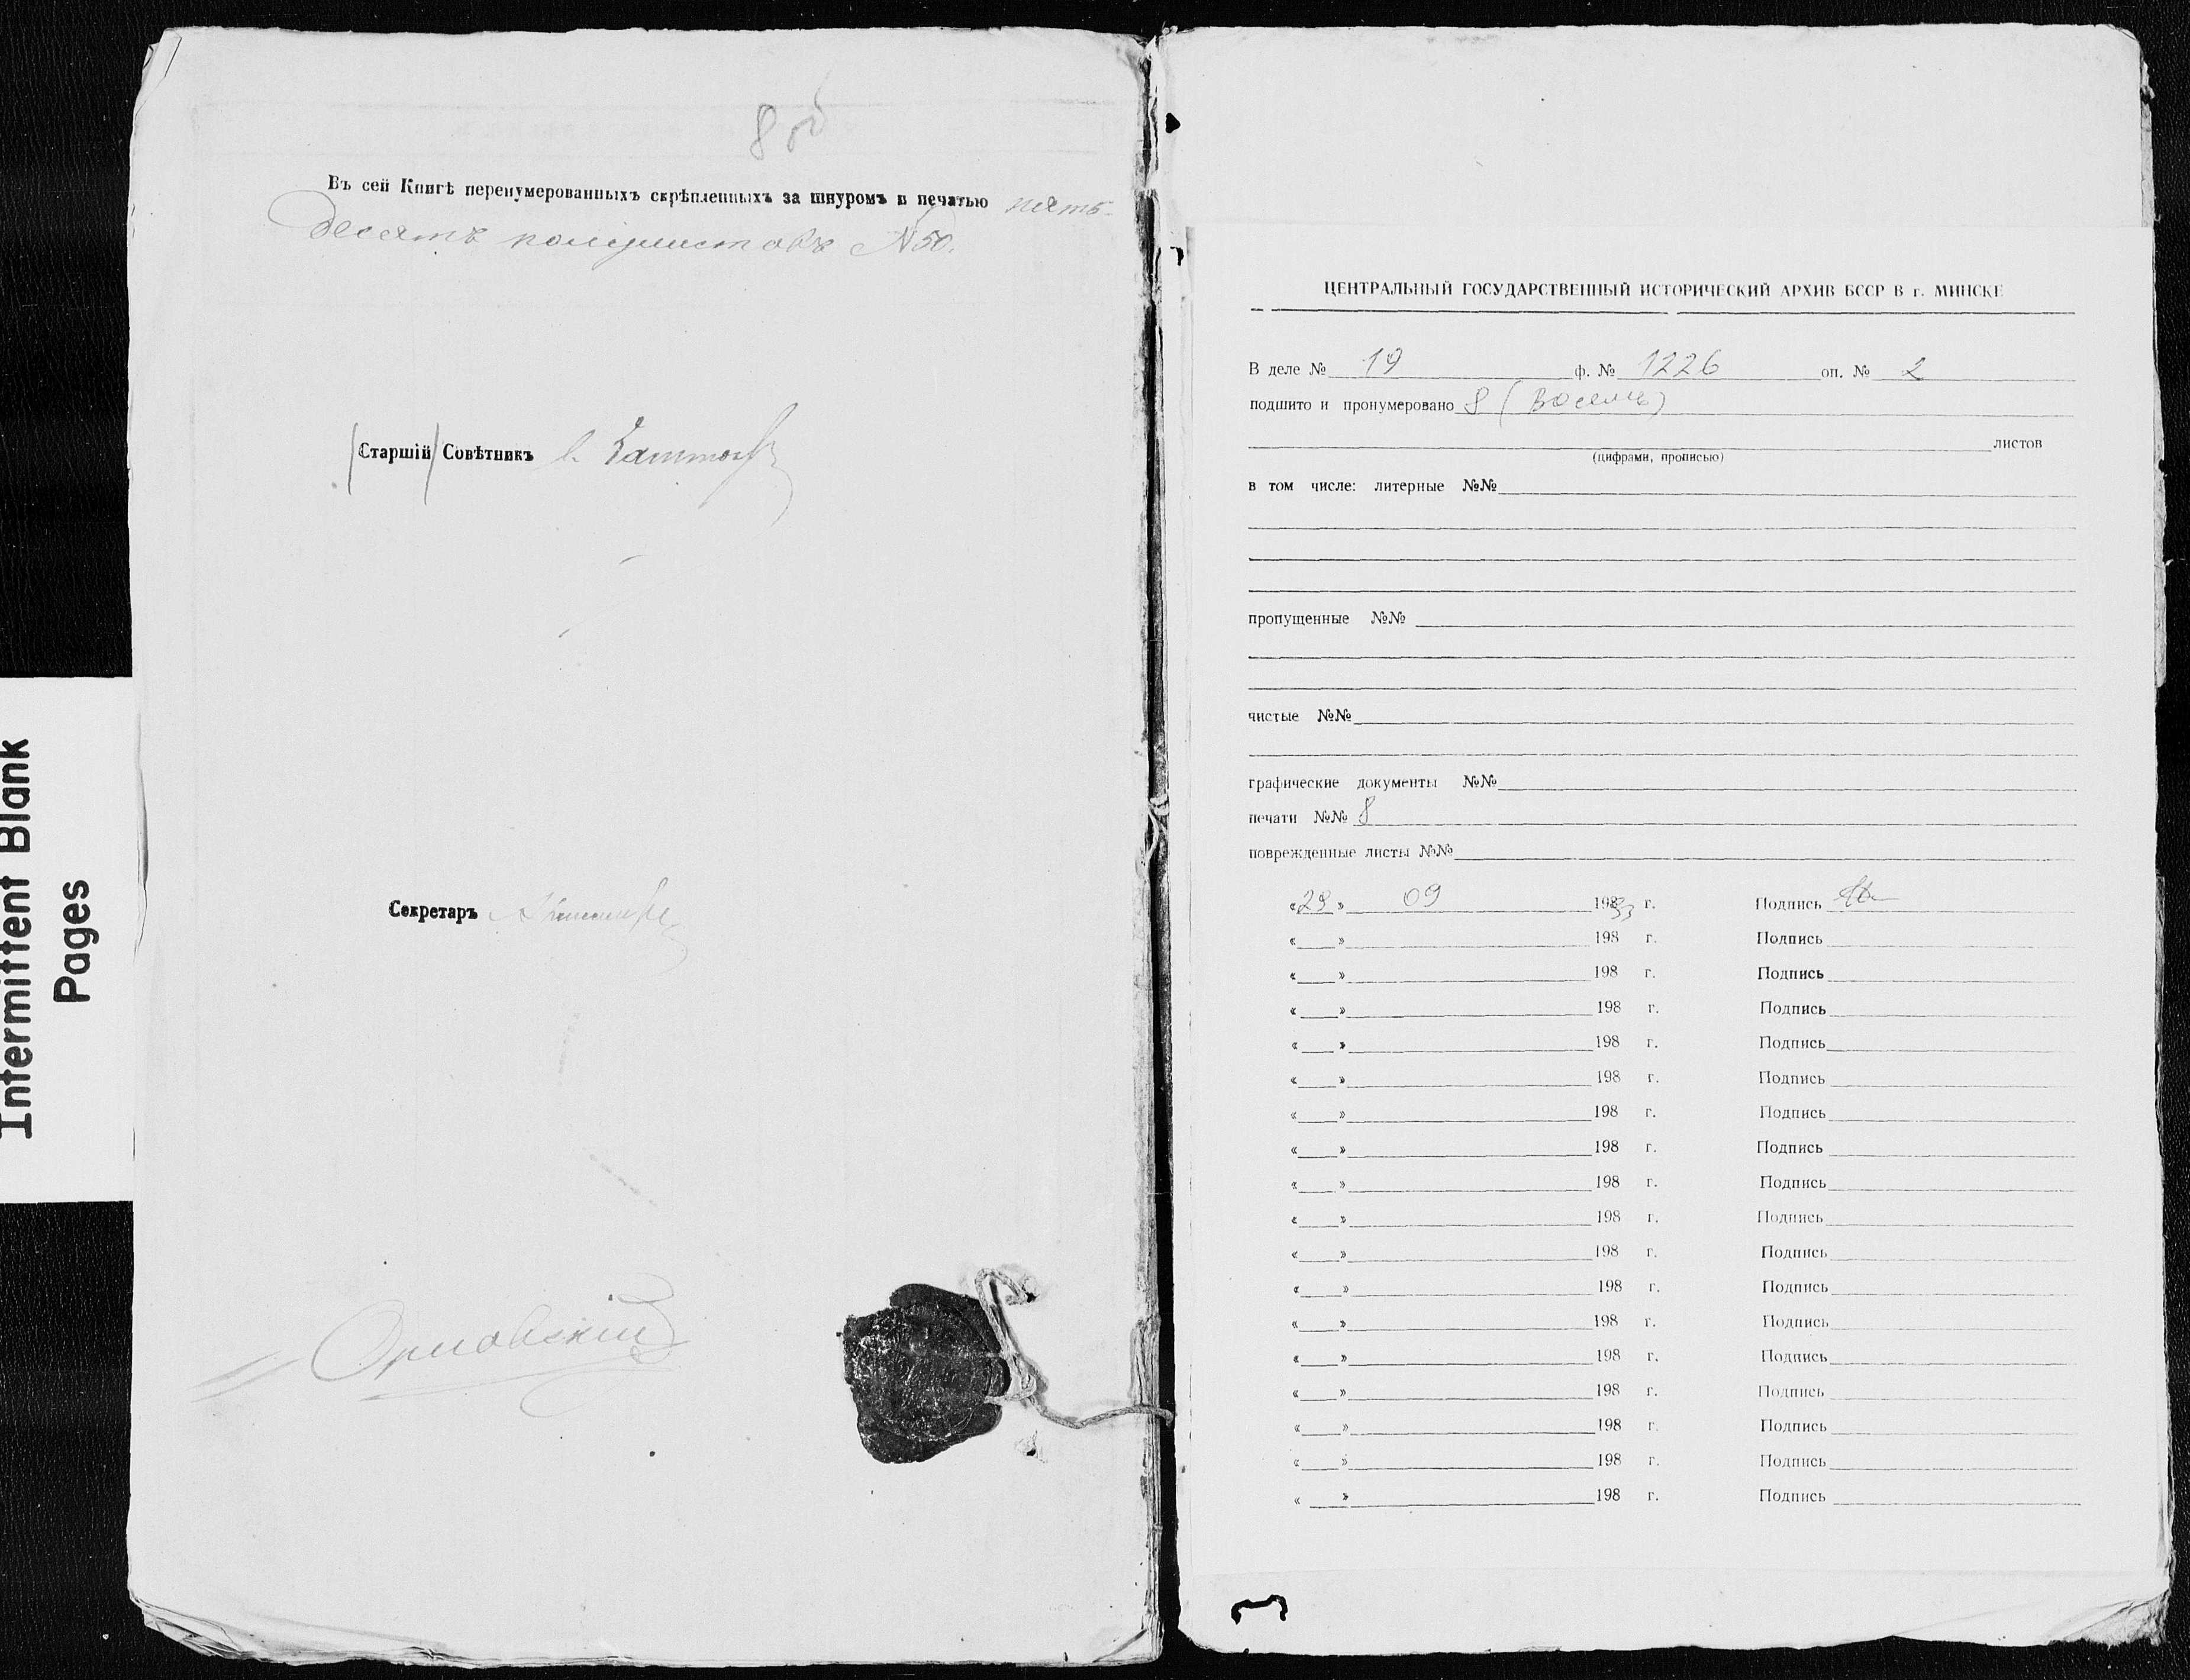 8 об
Въ сей Книгѣ перенумерованныхъ скрѣпленныхъ за шнуромъ и печатью пять-
десятъ полулистовъ №50.
Старшій Совѣтникъ
Секретарь
Орловскій
Intermittent Blank
Pages
ЦЕНТРАЛЬНЫЙ ГОСУДАРСТВЕННЫЙ ИСТОРИЧЕСКИЙ АРХИВ БССР В г. МИНСКЕ
В деле № 19 ф. № 1226 оп. № 2
подшито и пронумеровано 8 (Восемь)
листов
(цифрами, прописью)
в том числе: литерные №№
пропущенные №№
чистые №№
графические документы №№
печати №№ 8
поврежденные листы №№
« » 09 г. Подпись
« » 198 г. Подпись
« » 198 г. Подпись
« » 198 г. Подпись
« » 198 г. Подпись
« » 198 г. Подпись
« » 198 г. Подпись
« » 198 г. Подпись
« » 198 г. Подпись
« » 198 г. Подпись
« » 198 г. Подпись
« » 198 г. Подпись
« » 198 г. Подпись
« » 198 г. Подпись
« » 198 г. Подпись
« » 198 г. Подпись
« » 198 г. Подпись
« » 198 г. Подпись